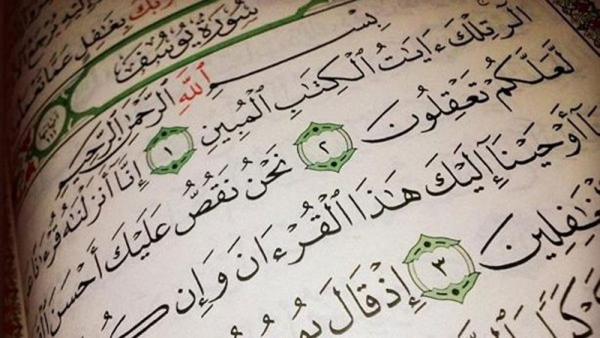 رَبُّكَ بِغَٰفِلٍ عَمَّا تَعْمَ
سُورَةُ يُوسُفَ
بِسْمِ ٱللَّهِ ٱلرَّحْمَٰنِ ٱلرَّحِيمِ
الٓر تِلْكَ ءَايَٰتُ ٱلْكِتَٰبِ ٱلْمُبِينِ ١ إِنَّآ أَنزَلْنَٰهُ قُرْءَٰنًا
لَّعَلَّكُمْ تَعْقِلُونَ ٢ نَحْنُ نَقُصُّ عَلَيْكَ أَحْسَنَ ٱلْ
مَآ أَوْحَيْنَآ إِلَيْكَ هَٰذَا ٱلْقُرْءَانَ وَإِن كُ
ٱلْغَٰفِلِينَ ٣ إِذْ قَالَ يُو